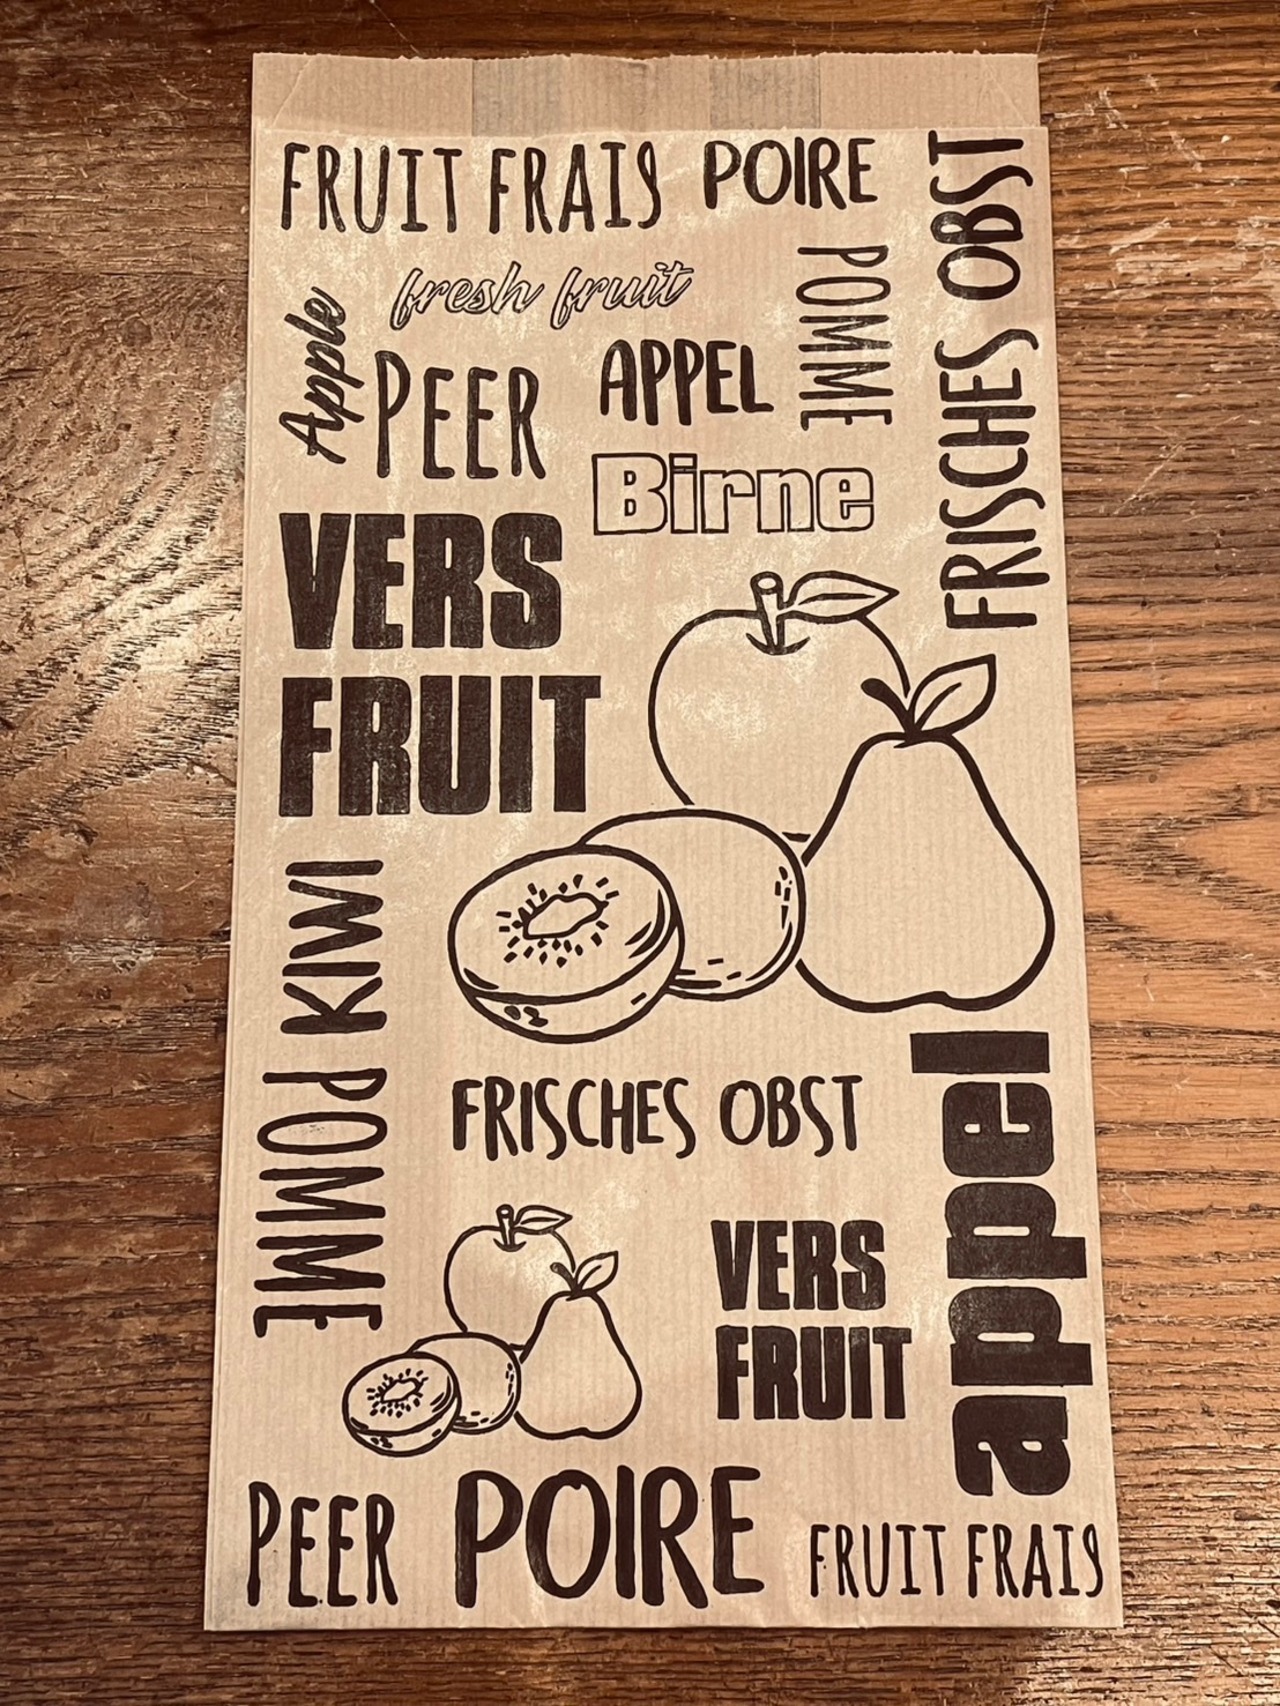 FRUIT FRAIS
POIRE
FRISCHES OBST
fresh fruit
POMME
Apple
PEER
APPEL
Birne
VERS
FRUIT
KIWI
POMME
FRISCHES OBST
appel
VERS
FRUIT
PEER
POIRE
FRUIT FRAIS